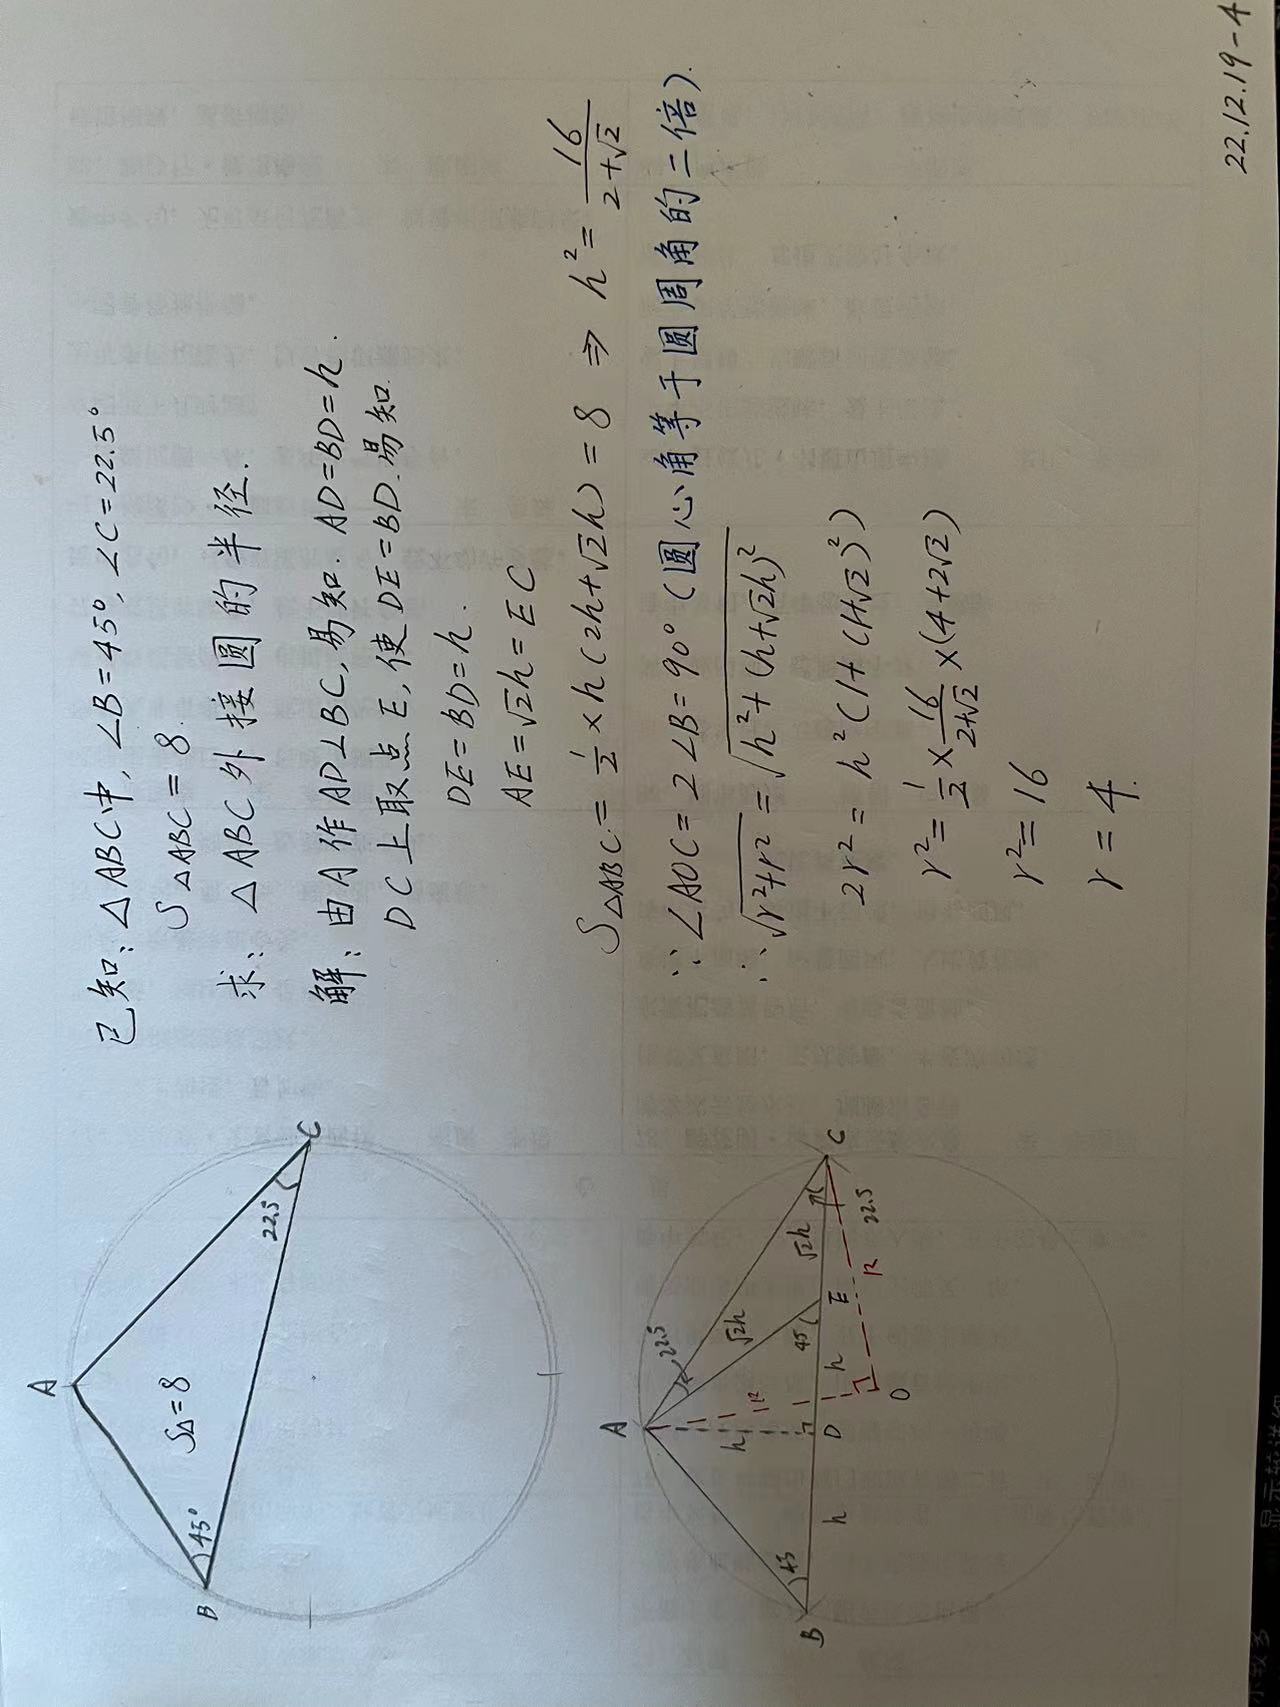 A
B
45°
S△=8
22.5
C
已知: △ABC中, ∠B=45°, ∠C=22.5°
S△ABC = 8.
求: △ABC外接圆的半径.
解: 由A作AD⊥BC, 易知. AD=BD=h.
DC上取点E, 使DE=BD. 易知.
DE=BD=h.
AE=√2h=EC
S△ABC = 1/2 × h(2h+√2h) = 8 ⇒ h²= 16/(2+√2)
∵ ∠AOC = 2∠B = 90° (圆心角等于圆周角的二倍).
∴ √(r²+r²) = √(h²+(h+√2h)²)
2r² = h²(1+(1+√2)²)
r² = 1/2 × 16/(2+√2) × (4+2√2)
r² = 16
r = 4.
A
22.5
h
R
√2h
B
45
45
√2h
C
h
D
h
E
R
22.5
O
22.12.19-4
显示较详细